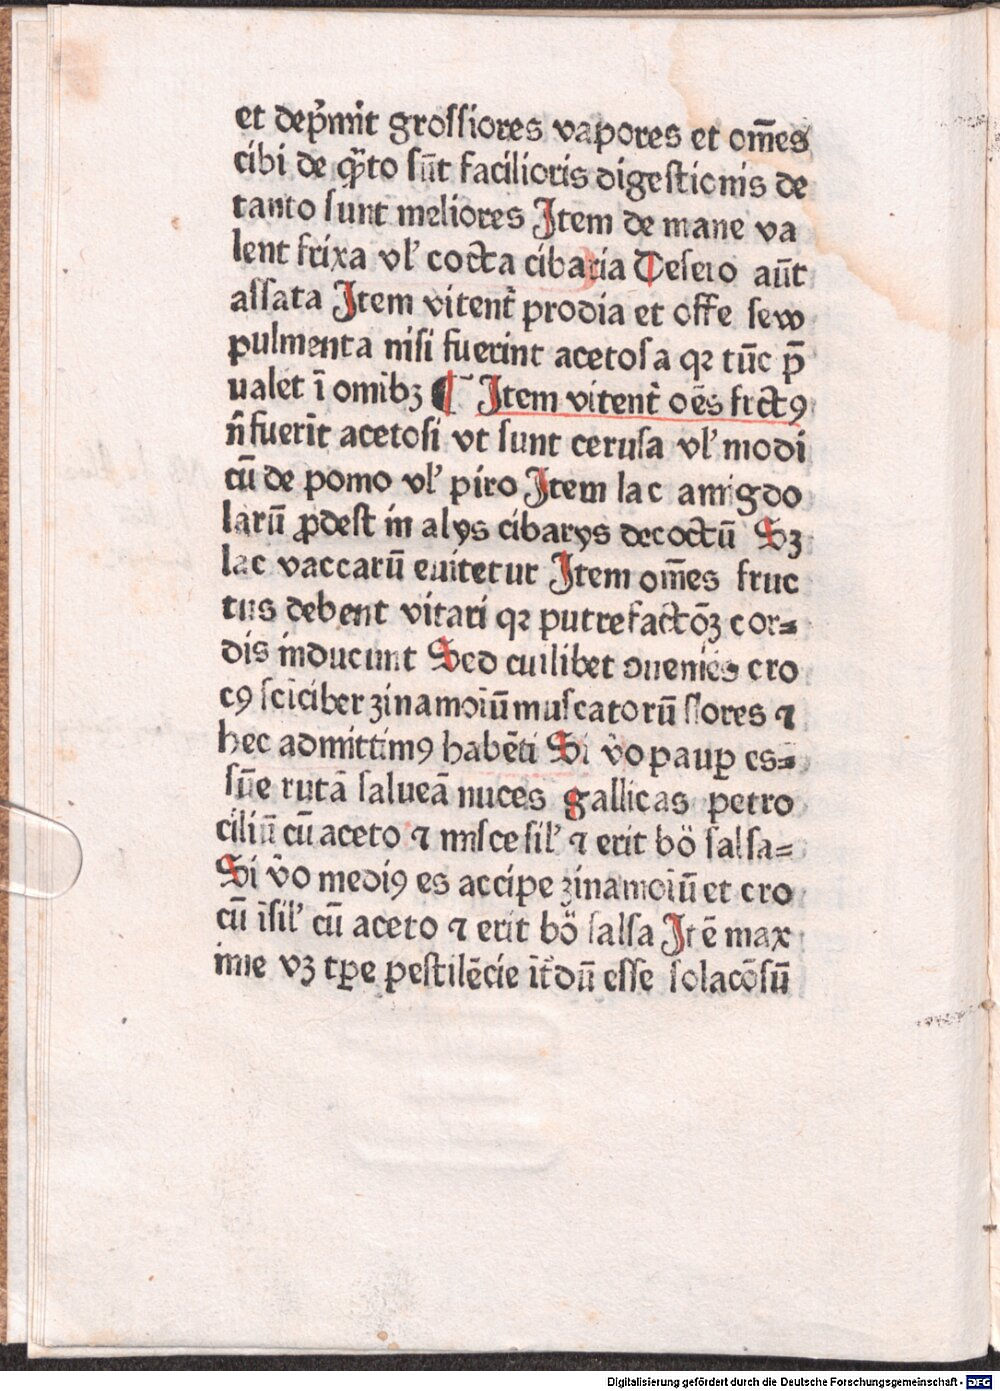 et dep̾mit groſſiores vapores et om̅es
cibi de qͣ̈to ſu̅t facilioris digeſtionis de
tanto ſunt meliores Item de mane va
lent frixa vl̕ cocta cibaria De ſero au̅t
aſſata Item vitent᷑ prodia et offe ſew
pulmenta niſi fuerint acetoſa qꝛ tu̅c p̅
ualet i̅ omibꝫ ¶ Item vitent᷑ oe̅s frctꝰ
n̅ fueri̅t acetoſi vt ſunt ceruſa vl̕ modi
cu̅ de pomo vl̕ piro Item lac amigdo
laru̅ ꝓdeſt in alys cibarys decoctu̅ Sꝫ
lac vaccaru̅ euitetur Item om̅es fruc
tus debent vitari qꝛ putrefacto̅ꝫ cor⸗
dis inducunt Sed cuilibet ↄuenie̅s cro
cꝰ ſciciber zinamoiu̅ muſcatoru̅ flores ⁊
hec admittimꝰ habe̅ti Si v̊o paup̲ es⸗
ſu̅e ruta̅ ſaluea̅ nuces gallicas petro
ciliu̅ cu̅ aceto ⁊ miſce ſil̕ ⁊ erit bo̅ ſalſa⸗
Si v̊o mediꝰ es accipe zinamoiu̅ et cro
cu̅ i̅ſil̕ cu̅ aceto ⁊ erit bo̅ ſalſa Ite̅ max
ime vꝫ tꝑe peſtile̅cie i̅t᷑du̅ eſſe ſolaco̅ſu̅
Digitalisierung gefördert durch die Deutsche Forschungsgemeinschaft - DFG